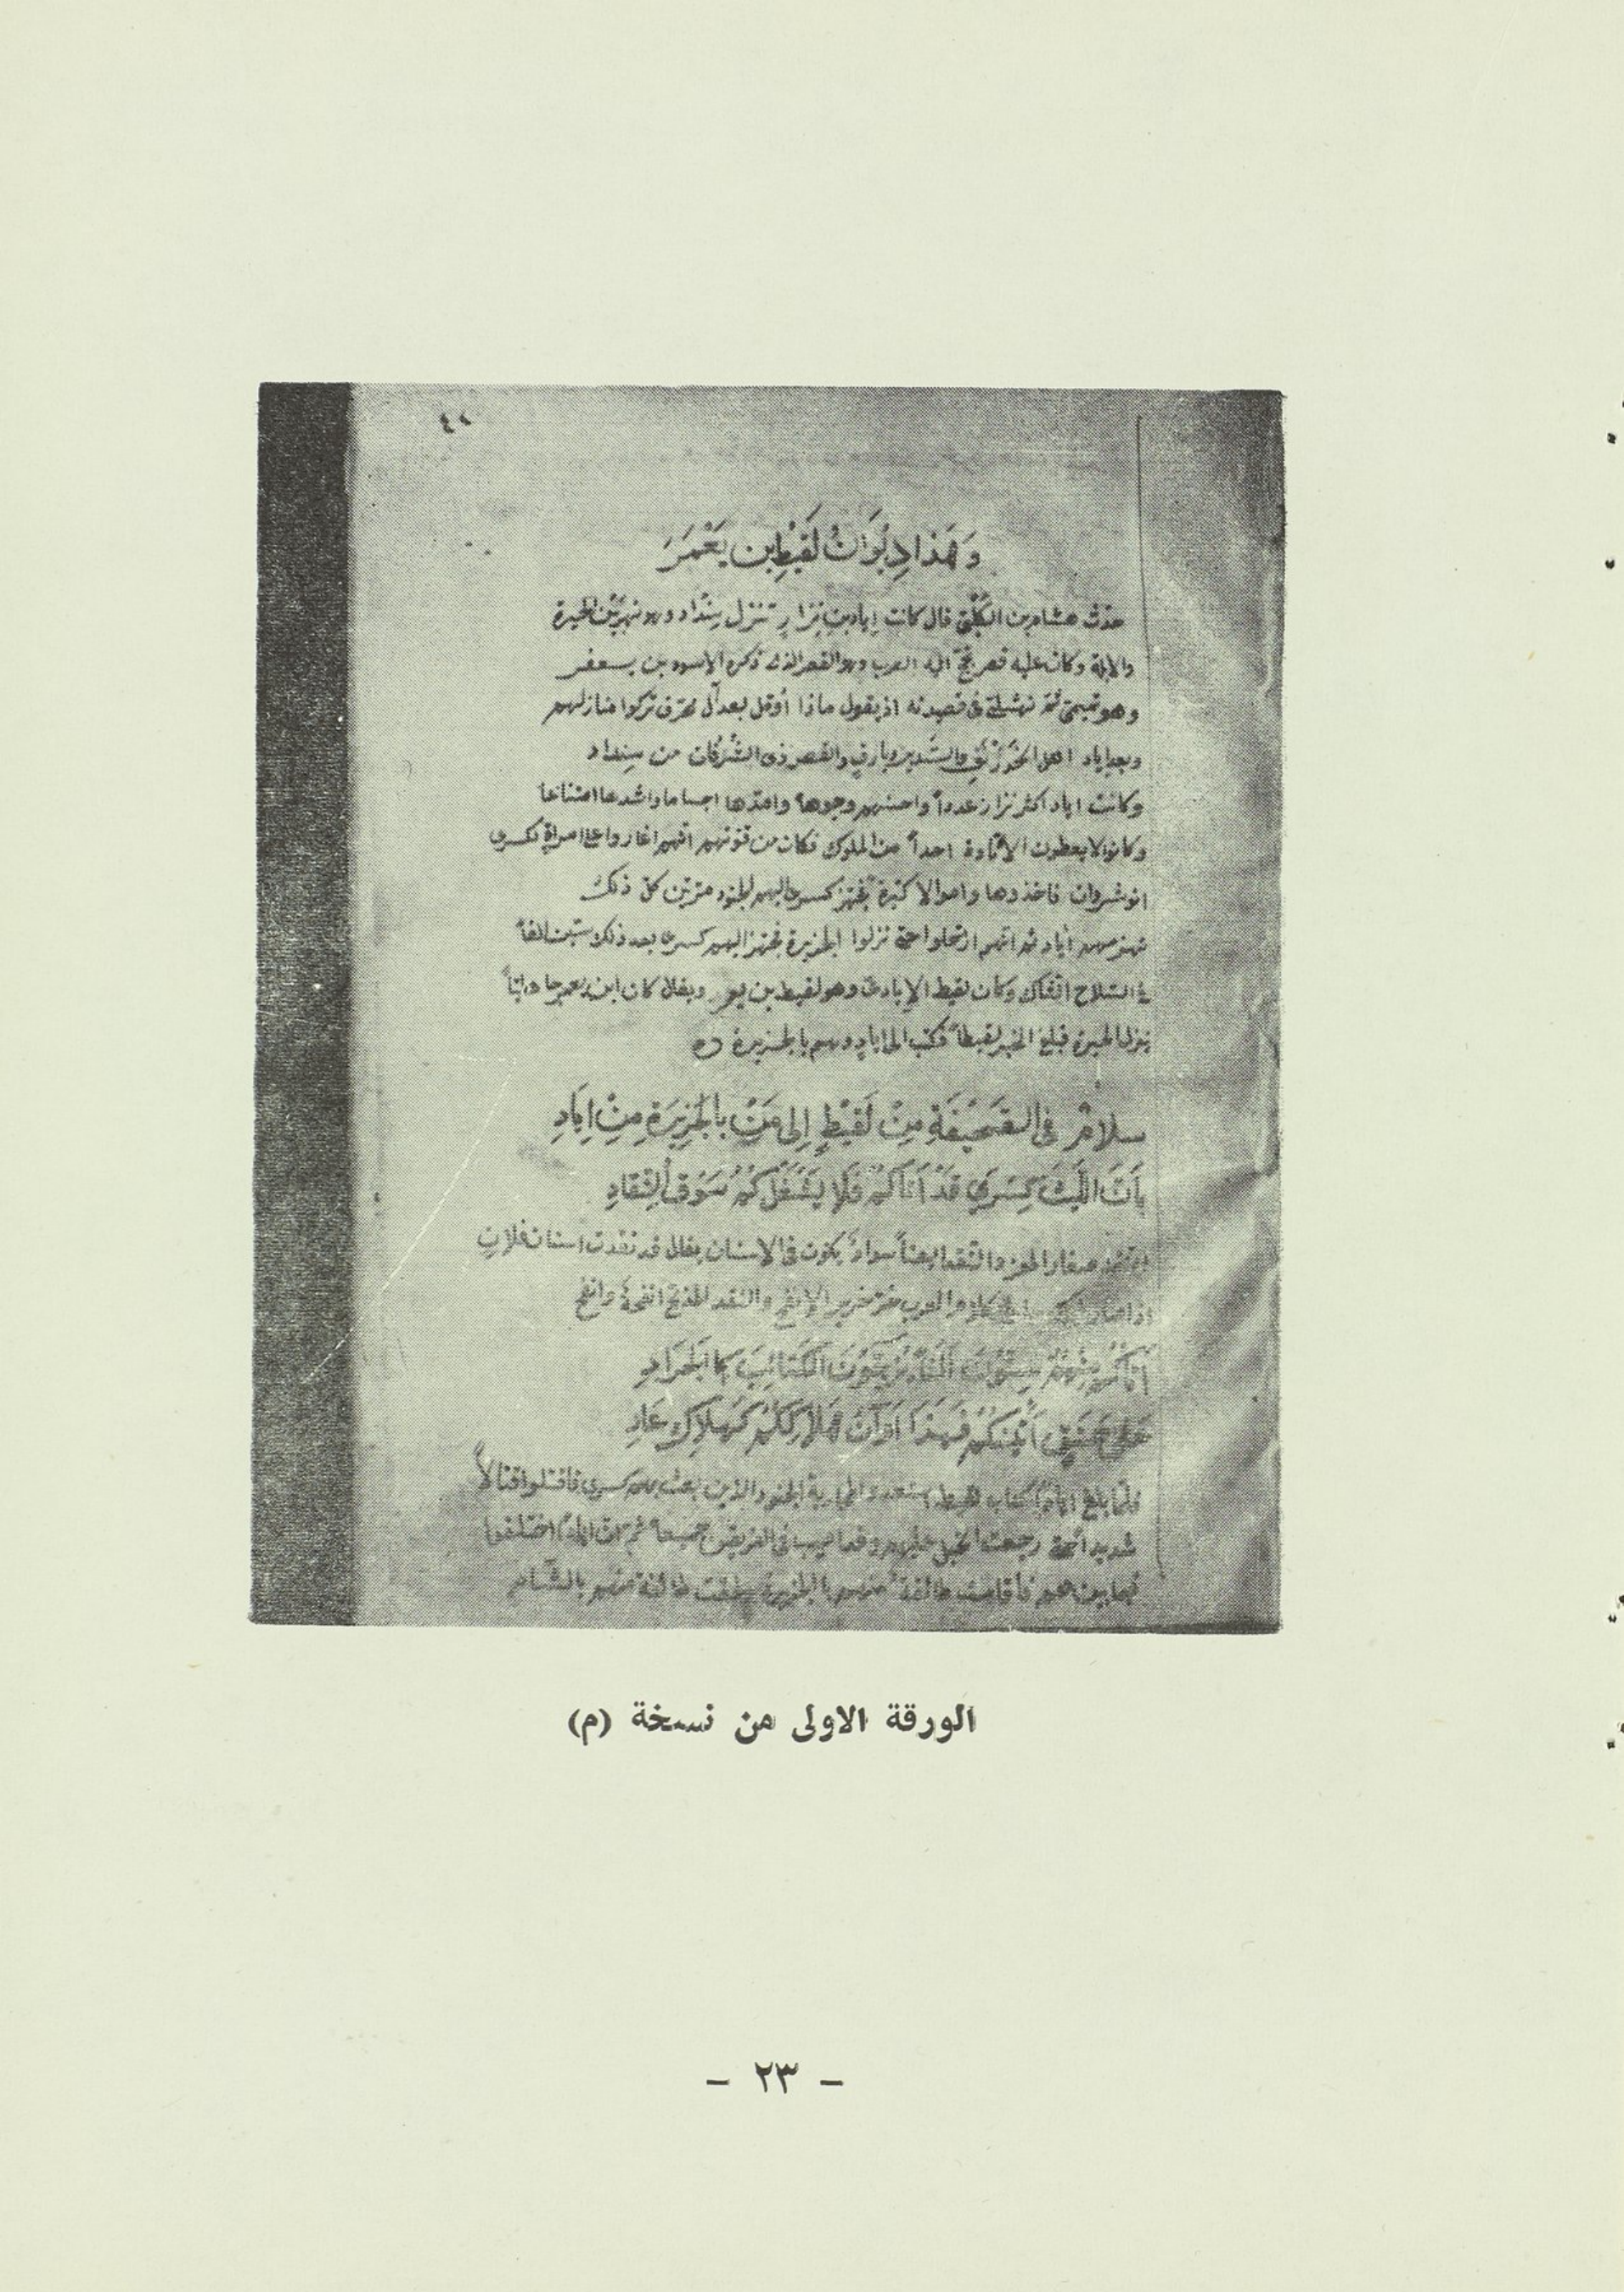 وَهَذا دِيْوَانُ لَقِيْطِ بن يَعْمَرَ
حدّث هشام بن الكَلْبيّ قال كانت إياد بن نِزارٍ تنزل سِنْداد وهو نهر بَيْن الحيرة
والابلة وكان عليه قصر تحجّ اليه العرب وهو القصر الذى ذكره الاسود بن يعفر
وهو تميمىّ ثم نهشلىّ فى قصيدته اذ يقول ماذا أؤمل بعد آل محرّق تركوا منازلهم
وبعد اياد اهل الخَوَرْنَقِ والسَّدير وبارقٍ والقصر ذى الشُّرُفات من سِنداد
وكانت اياد اكثر نزار عدداً واحسنهم وجوهاً وامدّها اجساما واشدها امتناعا
وكانوا لا يعطون الاتاوة احداً من الملوك فكان من قوتهم انّهم اغاروا على امراة لكسرى
انوشروان فاخذوها واموالا كثيرة فجهّز كسرى اليهم الجنود مرّتين كل ذلك
تهزمهم أياد ثم انهم ارتحلوا حتى نزلوا الجزيرة فجهز اليهم كسرى بعد ذلك ستين الفاً
فى السّلاح وكان لقيط الإيادىّ وهو لقيط بن يعمر ويقال كان ابن
ينزل الحيرة فبلغ الخبر لقيطاً فكتب الى اياد وهم بالجزيرة
سلامٌ فى الصَّحِيْفَةِ مِنْ لَقِيْطٍ إِلى مَنْ بالْجَزِيْرَةِ مِنْ إِيَادِ
بِأَنَّ اللَّيْثَ كِسْرَى قَدْ أَتَاكُمْ فَلا يَشْغَلْكُمُ سَوْقُ النِّقَادِ
صغار المعز والنّقد ايضاً سوادٌ يكون فى الاسنان يقال قد نقدت اسنان فلانٍ
كلام العرب والنقد
أَتَاكُمْ مِنْهُمُ سِتُّونَ أَلْفًا يَزُجُّونَ الكَتَائِبَ كالْجَرَادِ
عَلى حَنَقٍ أَتَيْنَكُمُ فَهَذَا أَوَانُ هَلاكِكُمْ كَهَلاكِ عَادِ
فلمّا بلغ اياداً كتاب لقيط استعدوا لمحاربة الجنود الذين بعث بهم كسرى فاقتتلوا قتالاً
شديداً رجعت الخيل وقد اصيب فى الفريقين جميعاً ثم ان اياداً اختلفوا
فيما بينهم فأقامت طائفة منهم بالجزيرة ولحقت طائفة منهم بالشّام
الورقة الاولى من نسخة (م)
- ٢٣ -